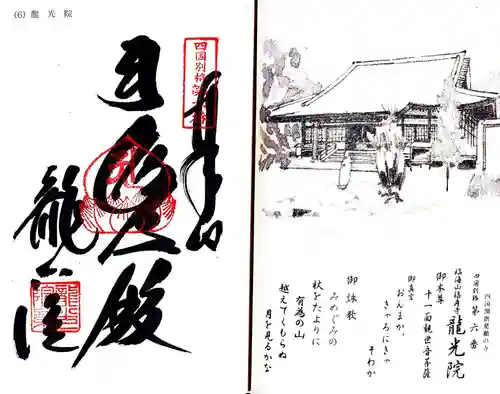 (6) 龍光院
四国別格第六番
龍光院
四国開創発願の寺
四国別格 第六番
臨海山福寿寺 龍光院
御本尊
十一面観世音菩薩
御真言
おんまか、
きゃろにきゃ
そわか
御詠歌
みめぐみの
杖をたよりに
有為の山
越えてくもらぬ
月を見るかな